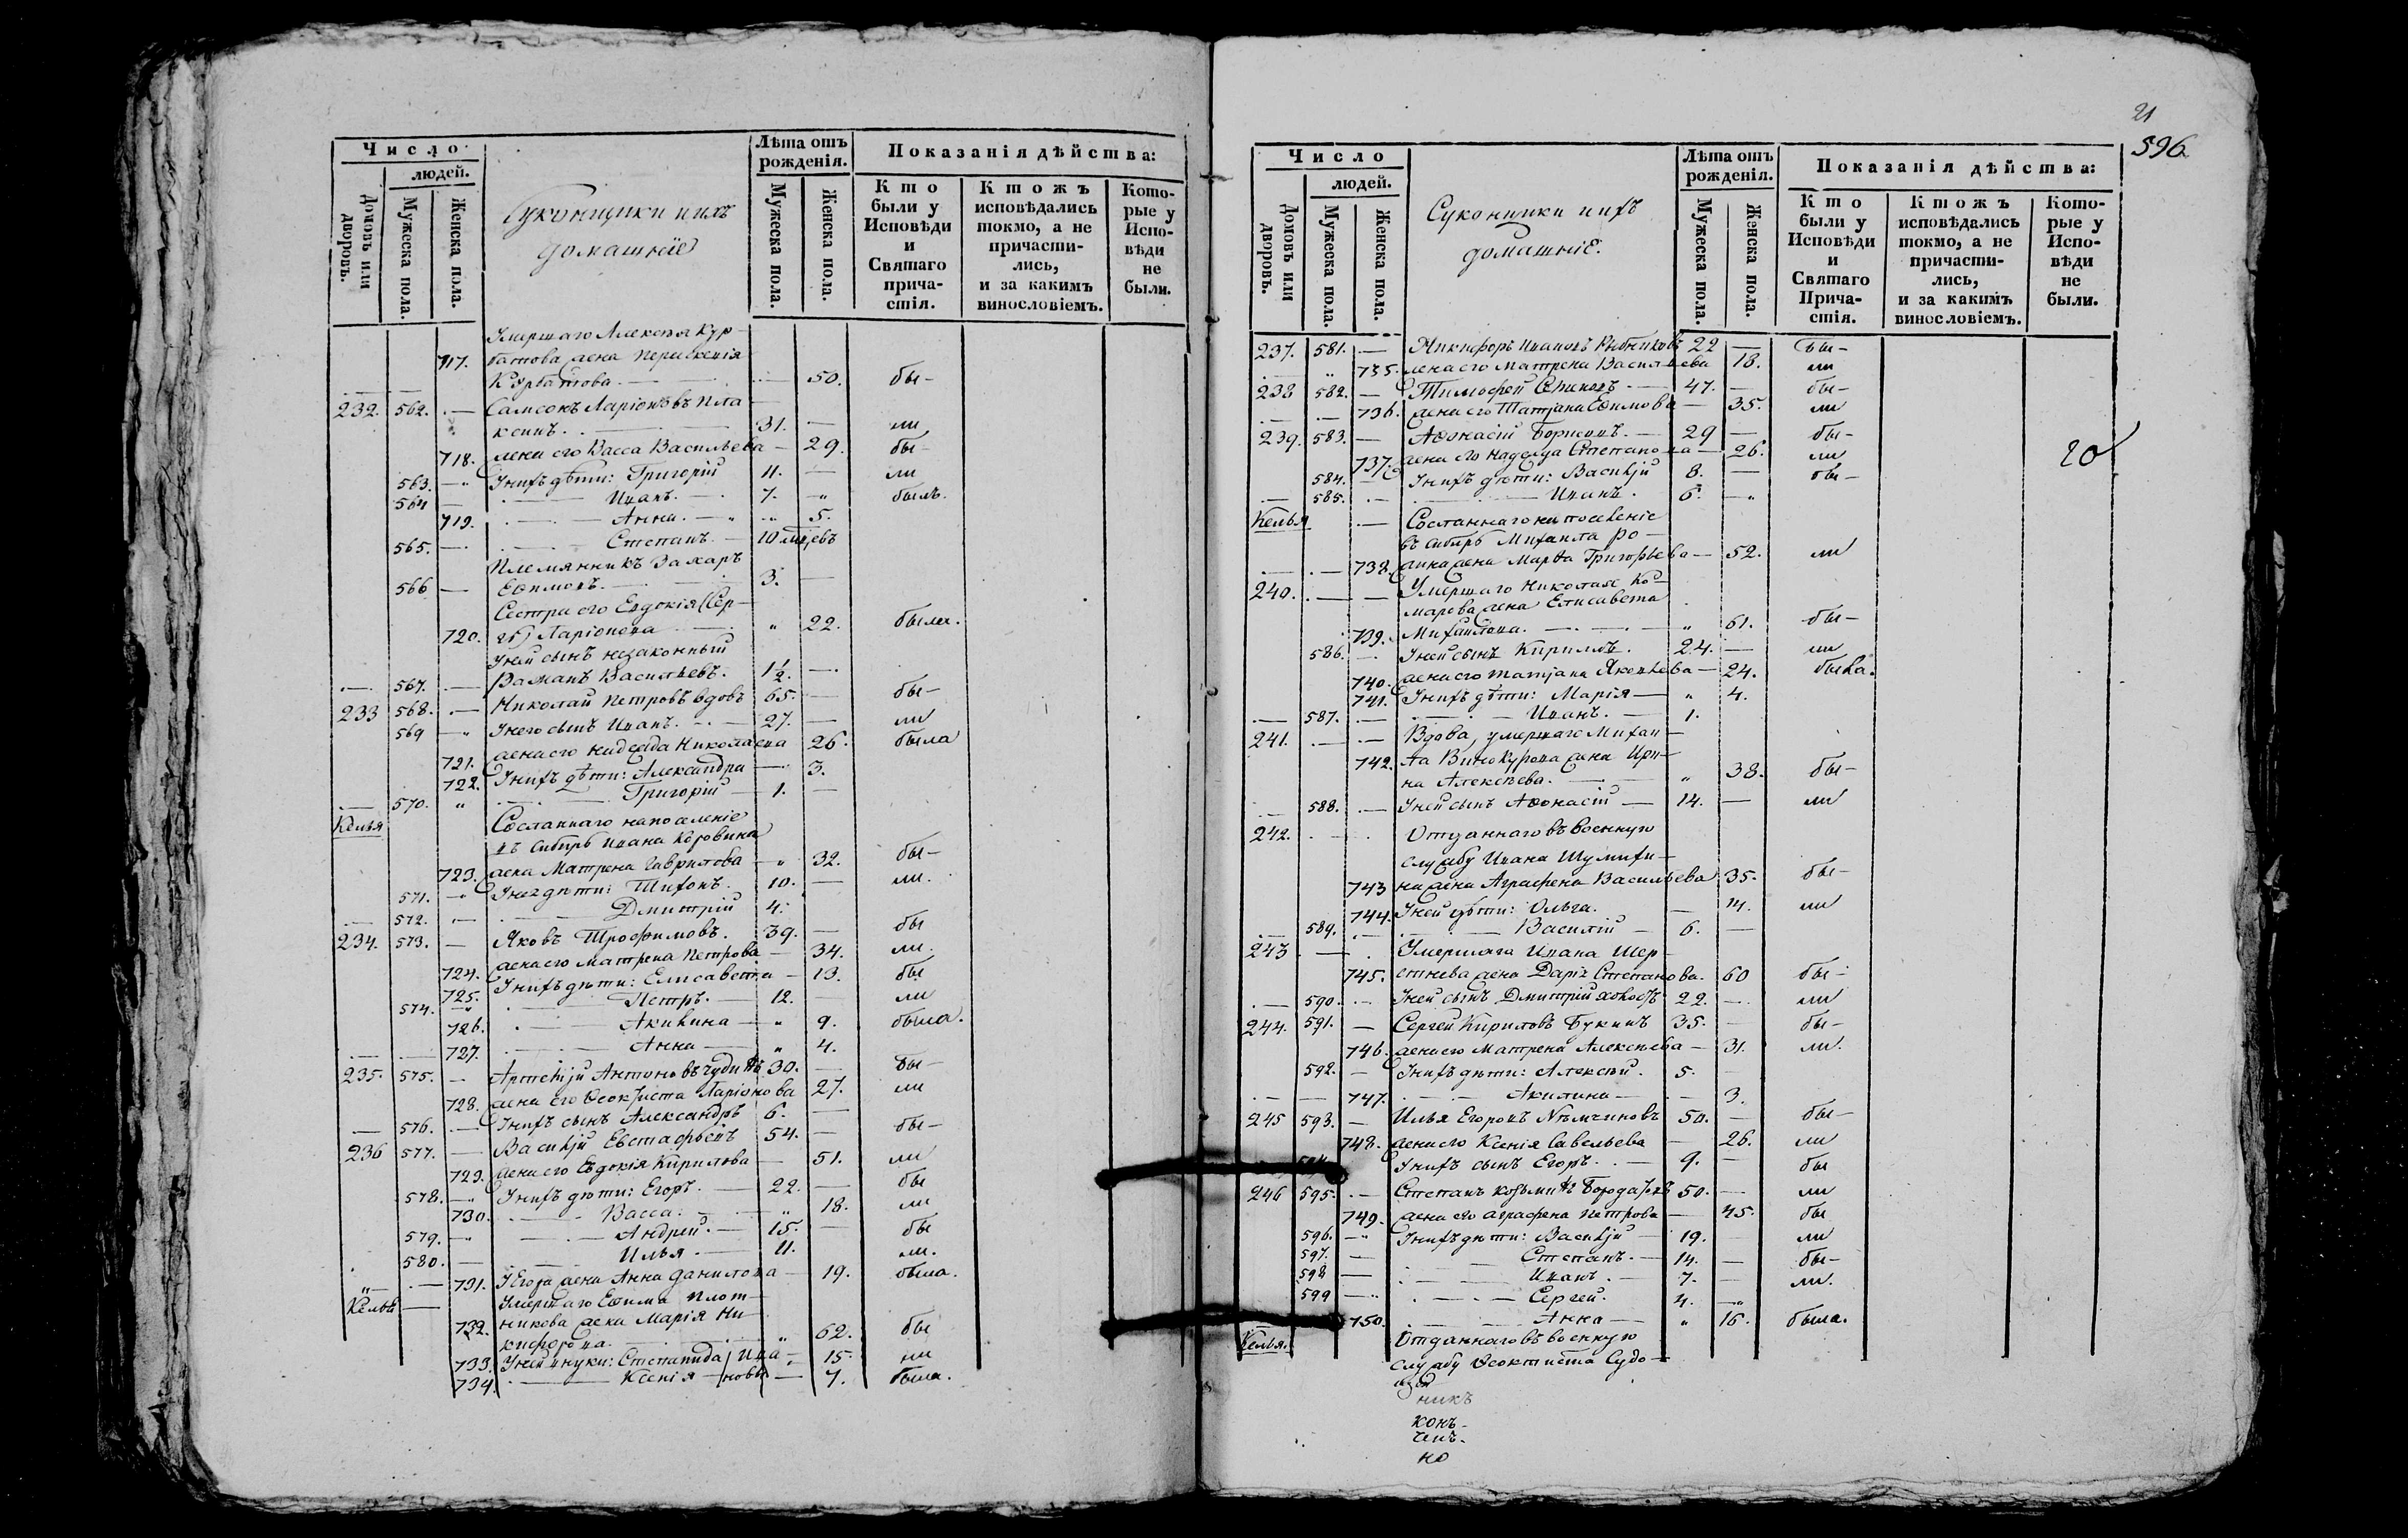 Число
людей.
Домовъ или дворовъ.
Мужеска пола.
Женска пола.
Суконщики ихъ
домашніе
Лѣта отъ рожденія.
Мужеска пола.
Женска пола.
Показанія дѣйства:
Кто были у Исповѣди и Святаго прича-стія.
Ктожъ исповѣдались токмо, а не причасти-лись, и за какимъ винословіемъ.
Кото-рые у Испо-вѣди не были.
Умершаго Алексѣя Кур-
717. батова жена
Курбатова. 50. бы-
232. 562. Самсонъ Ларіоновъ Пла
ксинъ. 31. ли
718. жена его Васса Васильева 29. бы-
563. У нихъ дѣти: Григорій 11. ли
564 Иванъ. 7. былъ.
719. Анна. 5.
565. Степанъ 10 мцевъ
Племянникъ Захаръ
566 Ефимовъ. 3.
Сестра его Евдокія (Сер-
720. Ларіонова 22. была.
У ней сынъ незаконный
567. Раманъ Васильевъ. 1½.
233 568. Николай Петровъ вдовъ 65. бы-
569 У него сынъ Иванъ. 27. ли
721. жена его Надежда Николаева 26. была
722. У нихъ дѣти: Александра 3.
570. Григорій 1.
Келья Сосланнаго на поселеніе
въ Сибирь Ивана Коровина
723. жена Матрена Гаврилова 32. бы-
571. У нея дѣти: Тихонъ. 10. ли.
572. Дмитрій 4.
234. 573. Яковъ Трофимовъ. 39. бы
724. жена его Матрена Петрова 34. ли.
725. У нихъ дѣти: Елисавета 13. бы
574. Петръ. 12. ли
726. Акилина 9. была.
727. Анна 4.
235. 575. Артемій Антоновъ 30. бы-
728. жена его Ѳеоктиста Ларіонова 27. ли
576. У нихъ сынъ Александръ 6.
236 577. Василій Евстафьевъ 54. бы-
729. жена его Евдокія Кирилова 51. ли
578. У нихъ дѣти: Егоръ. 22. бы
730. Васса. 18. ли
579. Андрей. 15. бы
580. Илья. 11. ли.
731. У Егора жена Анна Данилова 19. была.
Келья Умершаго Ефима Плот-
732. никова жена Марія Ни-
кифорова. 62. бы
733. У ней внуки: Степанида Ива- 15. ли
734. Ксенія новы 7. была.
21
596
Число
людей.
Домовъ или дворовъ.
Мужеска пола.
Женска пола.
Суконщики ихъ
домашніе.
Лѣта отъ рожденія.
Мужеска пола.
Женска пола.
Показанія дѣйства:
Кто были у Исповѣди и Святаго Прича-стія.
Ктожъ исповѣдались токмо, а не причасти-лись, и за какимъ винословіемъ.
Кото-рые у Испо-вѣди не были.
237. 581. Никифоръ Ивановъ Рыбниковъ 22 бы-
735. жена его Матрена Васильева 18. ли
238 582. Тимофей 47. бы-
736. жена его Татіана Ефимова 35. ли
239. 583. Аѳонасій Борисовъ. 29 бы-
20
737. жена его Надежда Степанова 26. ли
584. У нихъ дѣти: Василій 8. бы-
585. Иванъ. 6.
Келья Сосланнаго на поселеніе
въ Сибирь Михаила Ро-
738. жена Марѳа Григорьева 52. ли
240. Умершаго Николая Ко-
марова жена Елисавета
739. Михайлова. 61. бы-
586. У ней сынъ Кириллъ. 24. ли
740. жена его Татіана Яковлева 24. была.
741. У нихъ дѣти: Марія 4.
587. Иванъ. 1.
241. Вдова, умершаго Михаи-
742. ла Винокурова жена Ири-
на Алексѣева. 38. бы-
588. У ней сынъ Аѳонасій 14. ли
242. Отданнаго въ военную
службу Ивана Шумихи-
743 на жена Аграфена Васильева 35. бы-
744. У ней дѣти: Ольга. 14. ли
589. Василій 6.
243 Умершаго Ивана Шер-
745. стнева жена Дарія Степанова. 60 бы-
590. У ней сынъ Дмитрій холостъ 22. ли
244. 591. Сергей Кириловъ Букинъ 35. бы-
746. жена его Матрена Алексѣева 31. ли.
592. У нихъ дѣти: Алексѣй. 5.
747. Акилина 3.
245 593. Илья Егоровъ Нѣмчиновъ 50. бы-
748. жена его Ксенія Савельева 26. ли
594 У нихъ сынъ Егоръ. 9. бы
246 595. Степанъ Козьминъ 50. ли
749. жена его Аграфена Петрова 45. бы
596. У нихъ дѣти: Василій 19. ли
597. Степанъ. 14. бы-
598 Иванъ. 7. ли.
599 Сергей. 4.
750. Анна 16. была.
Келья. Отданнаго въ военную
службу Ѳеоктиста Судо-